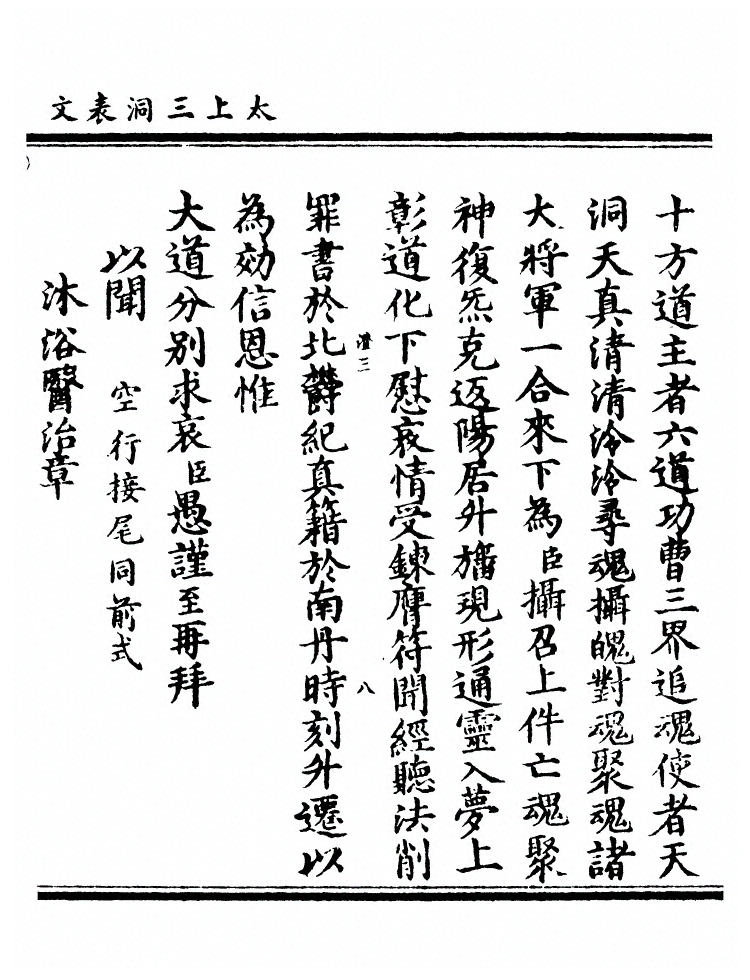 太上三洞表文
十方道主者六道功曹三界追魂使者天
洞天真清清泠泠尋魂攝魄對魂聚魂諸
大將軍一合來下為臣攝召上件亡魂聚
神復炁克返陽居升旛現形通靈入夢上
彰道化下慰哀情受鍊膺符聞經聽法削
罪書於北酆紀真籍於南丹時刻升遷以
為効信恩惟
大道分別求哀臣愚謹至再拜
以聞 空行接尾同前式
沐浴醫治章
澄三
八